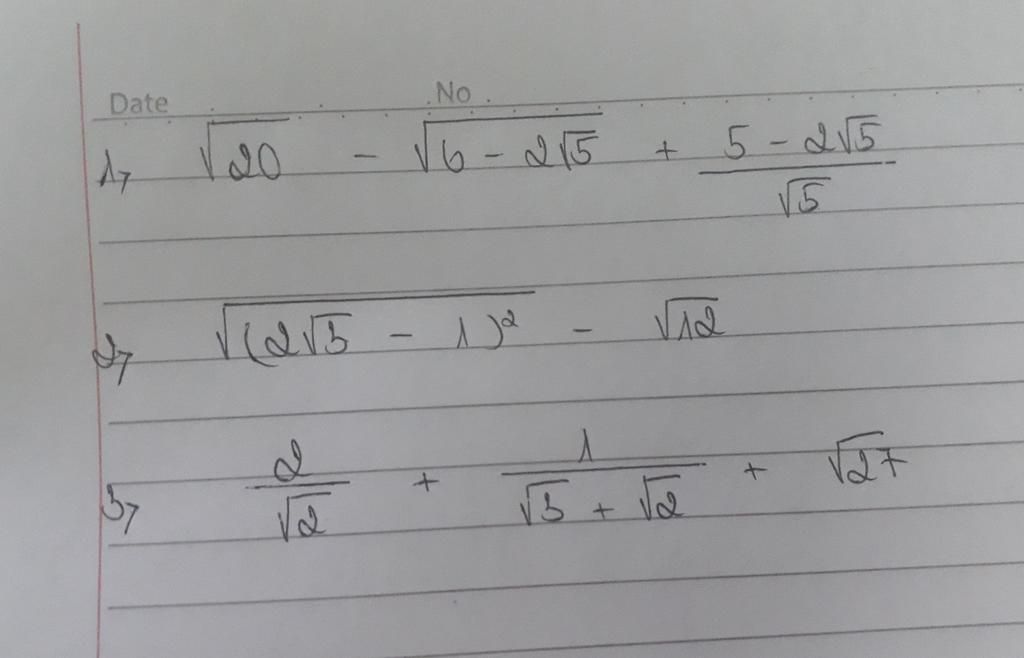 Date No
1, √20 - √(6 - 2√5) + (5 - 2√5)/√5
2, √((2√3 - 1)²) - √12
3, 2/√2 + 1/(√3 + √2) + √27